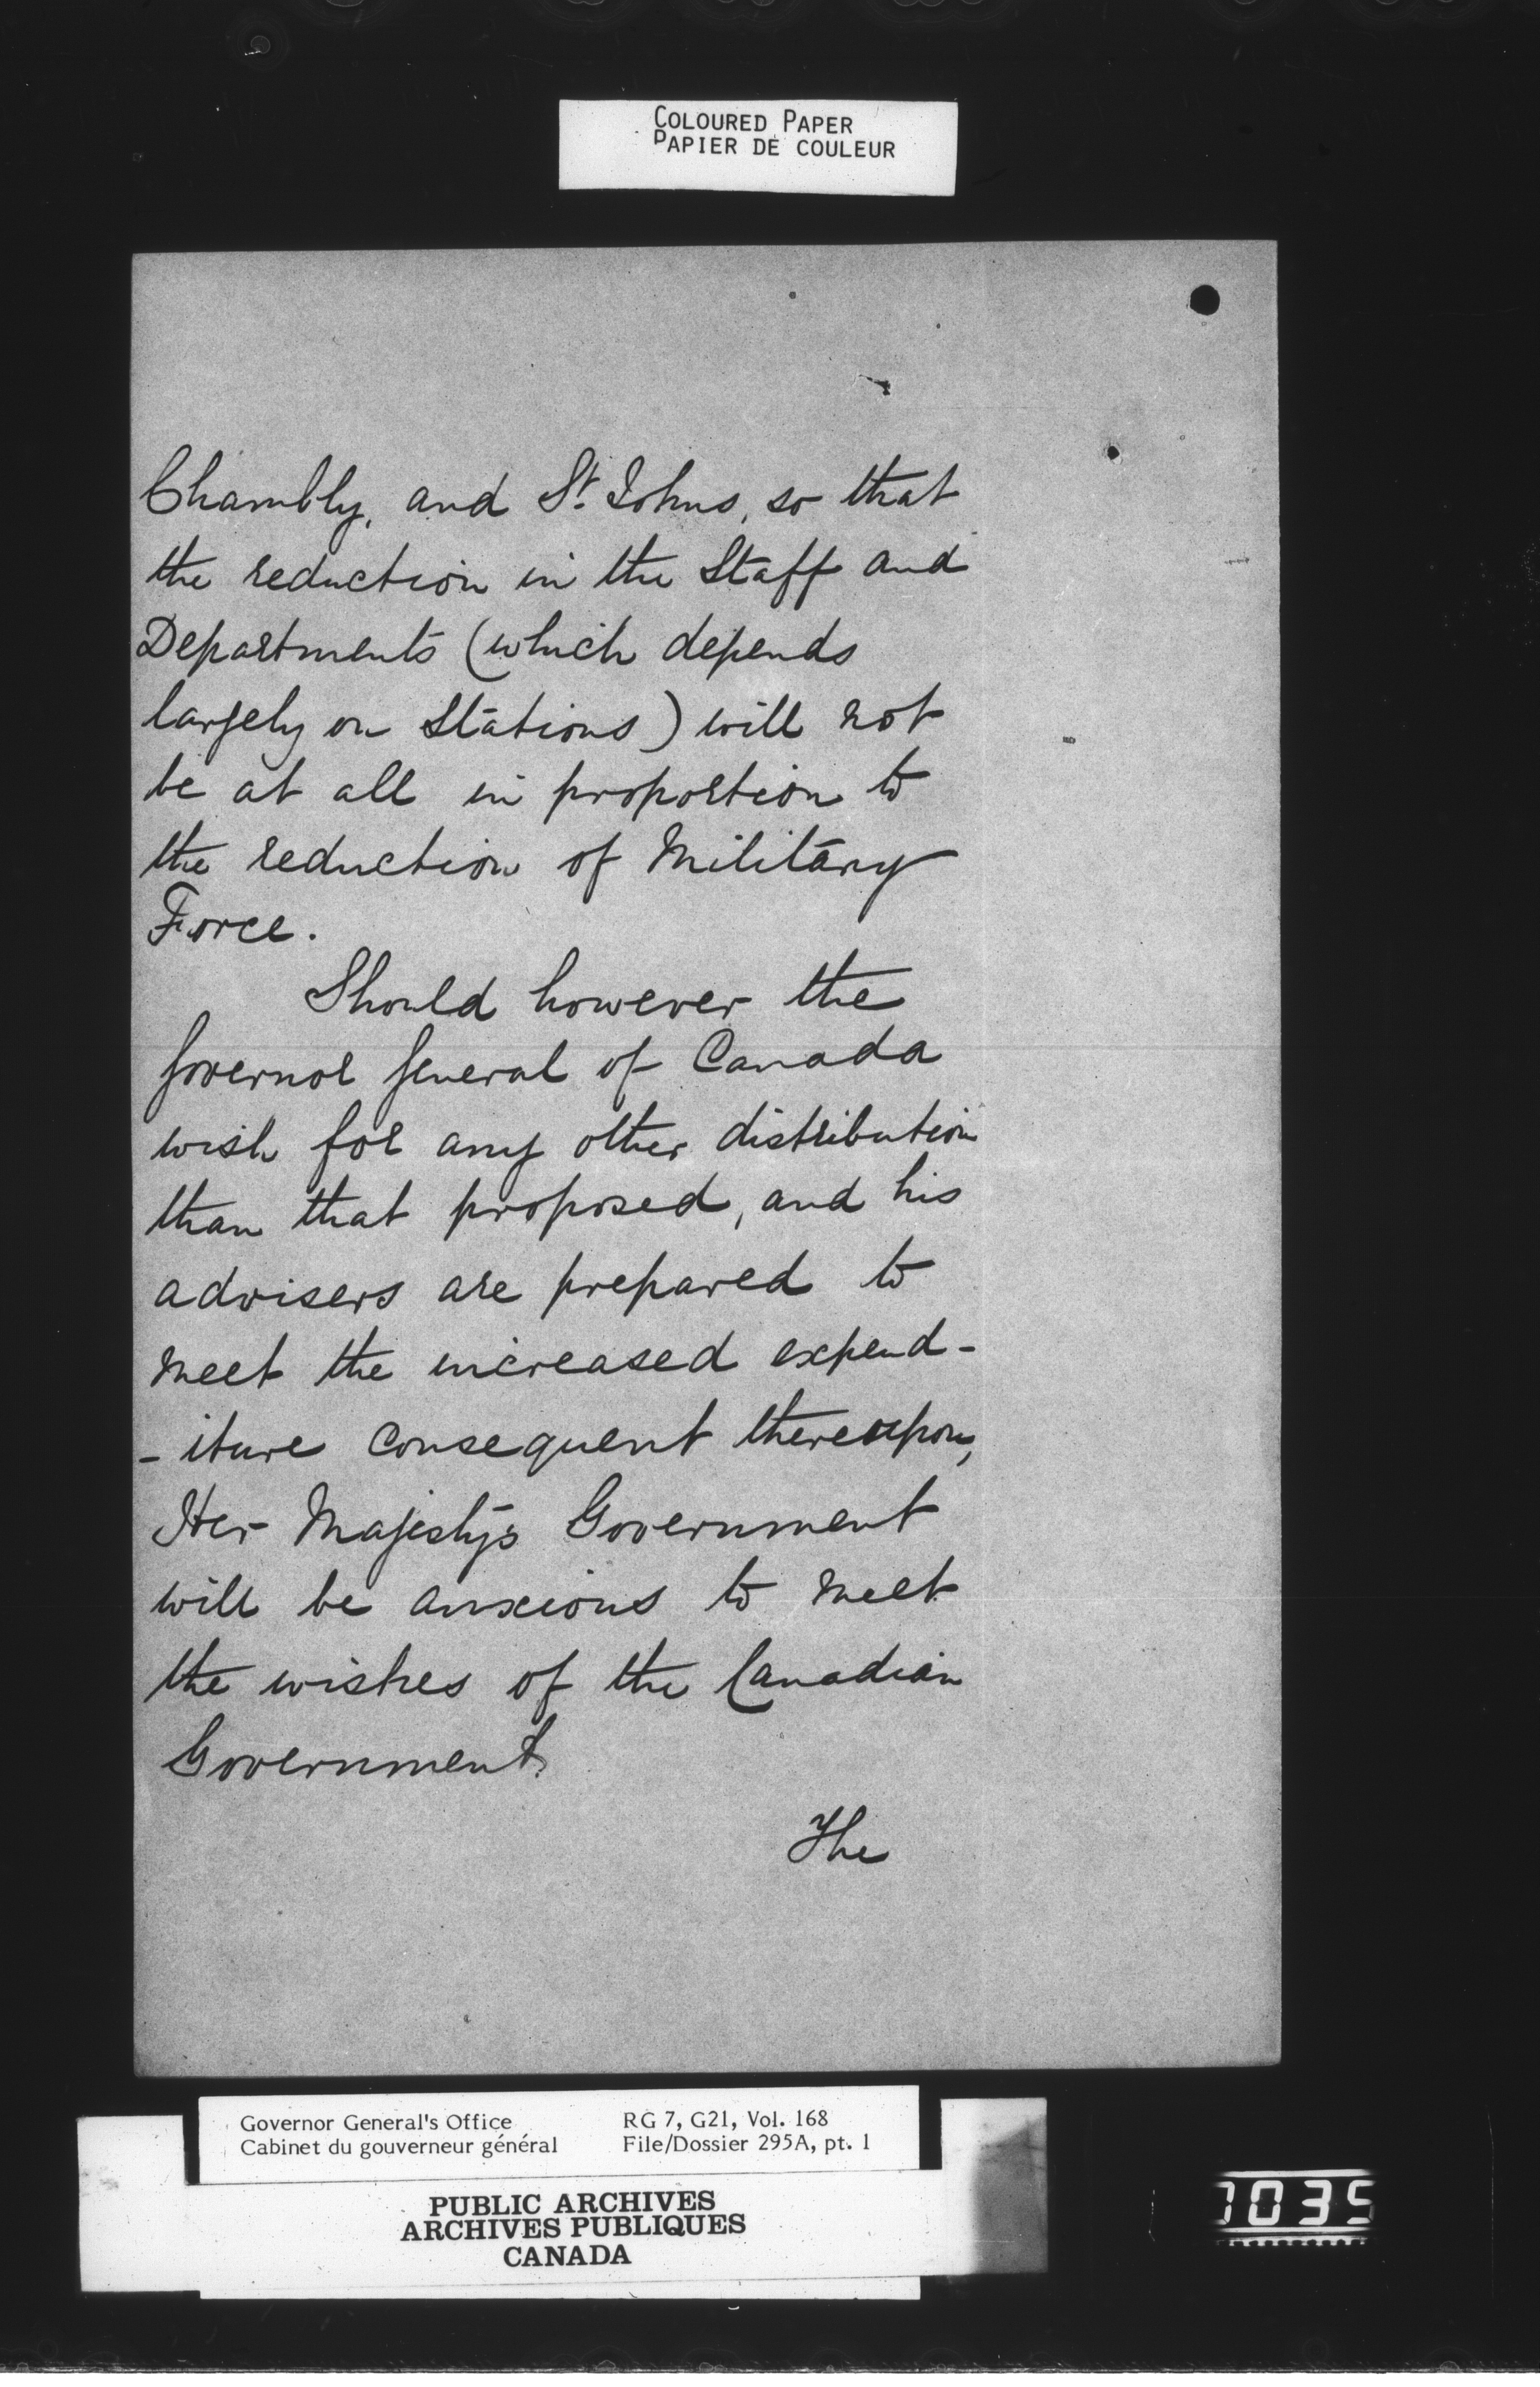 COLOURED PAPER
PAPIER DE COULEUR
Chambly, and St. Johns, so that
the reduction in the Staff and
Departments (which depends
largely on Stations) will not
be at all in proportion to
the reduction of Military
Force.
Should however the
Governor General of Canada
wish for any other distribution
than that proposed, and his
advisers are prepared to
meet the increased expend-
-iture consequent thereupon,
Her Majesty's Government
will be anxious to meet
the wishes of the Canadian
Government.
The
Governor General's Office RG 7, G21, Vol. 168
Cabinet du gouverneur général File/Dossier 295A, pt. 1
PUBLIC ARCHIVES
ARCHIVES PUBLIQUES
CANADA
1035